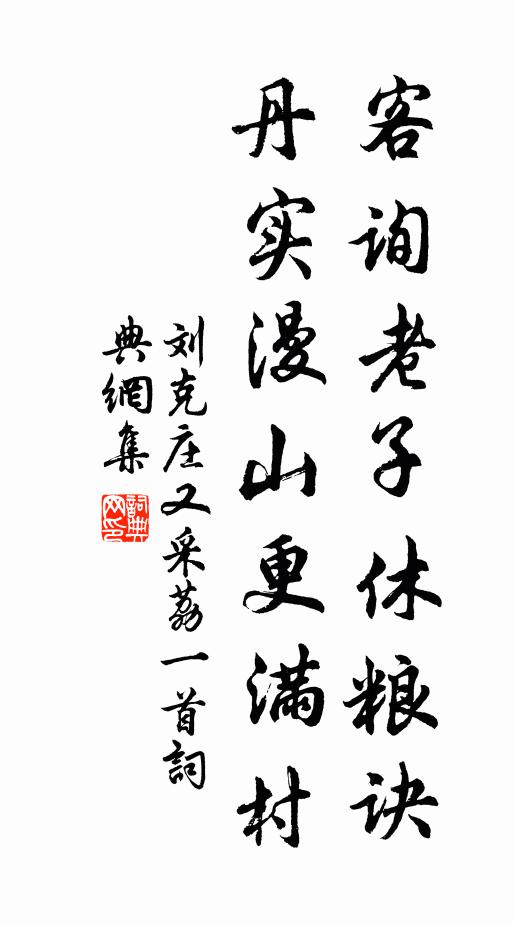 客询老子休粮诀
丹实漫山更满村
刘克庄又采荔一首詞
典網集
詞典网印